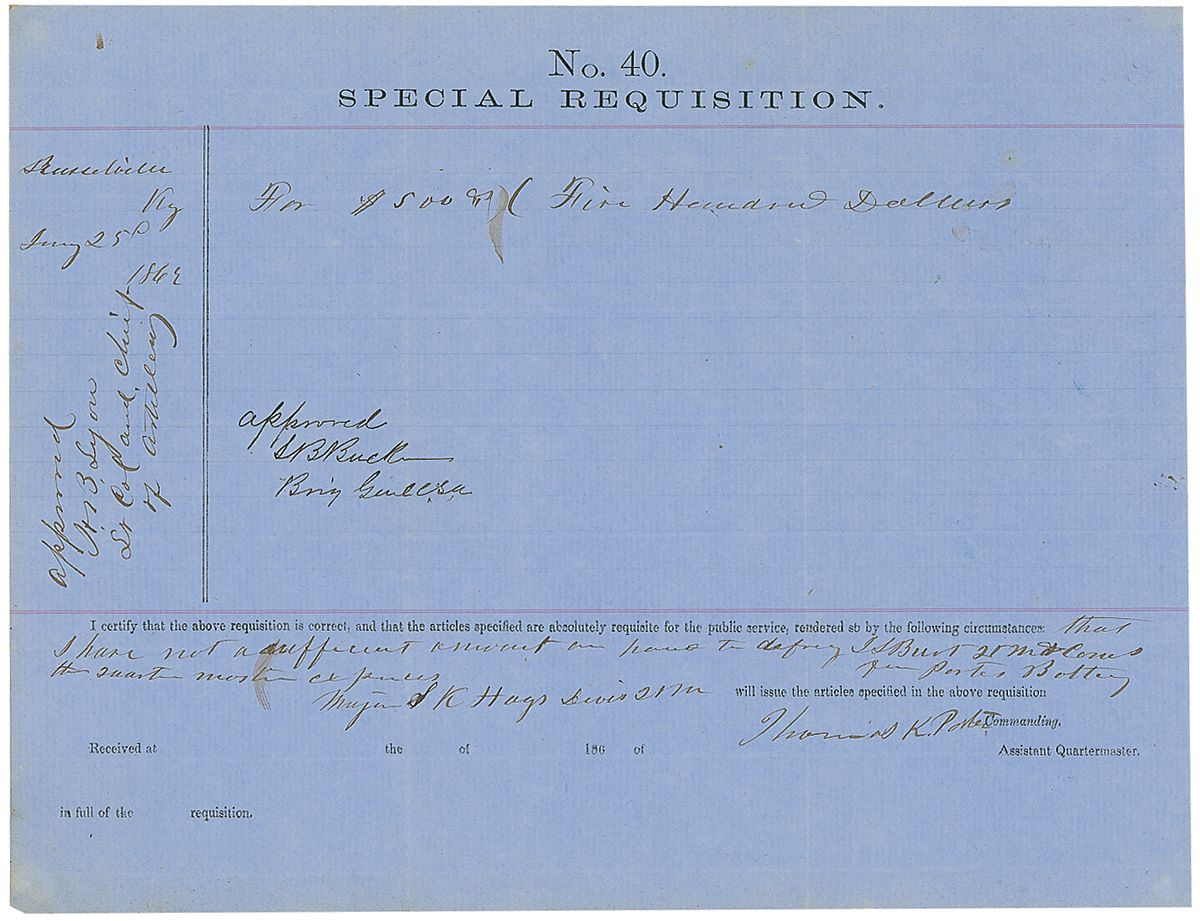 No. 40.
SPECIAL REQUISITION.
Russelville
Ky
Jany 25
1862
For $500 ( Five Hundred Dollars
approved
H B Lyon
Lt Col and Chief
of Artillery
approved
S B Buck
Brig Genl C.S.A
I certify that the above requisition is correct, and that the articles specified are absolutely requisite for the public service, rendered sb by the following circumstances: that
I have not a sufficient amount on hand to defray
the quarter master expences
Porter Battery
Major S K Hays Divis 2r M will issue the articles specified in the above requisition
Thomas K. Porter Commanding.
Received at the of 186 of Assistant Quartermaster.
in full of the requisition.